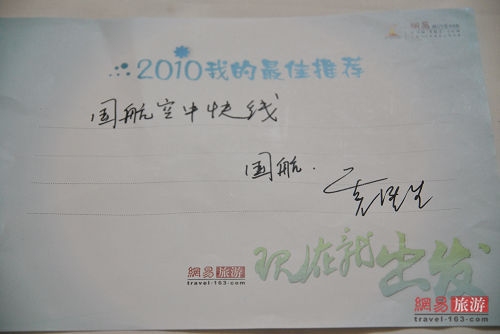 網易
2010我的最佳推荐
国航空中快线
国航.
現在就出发
網易旅游
travel·163·com
網易旅游
travel-163-com